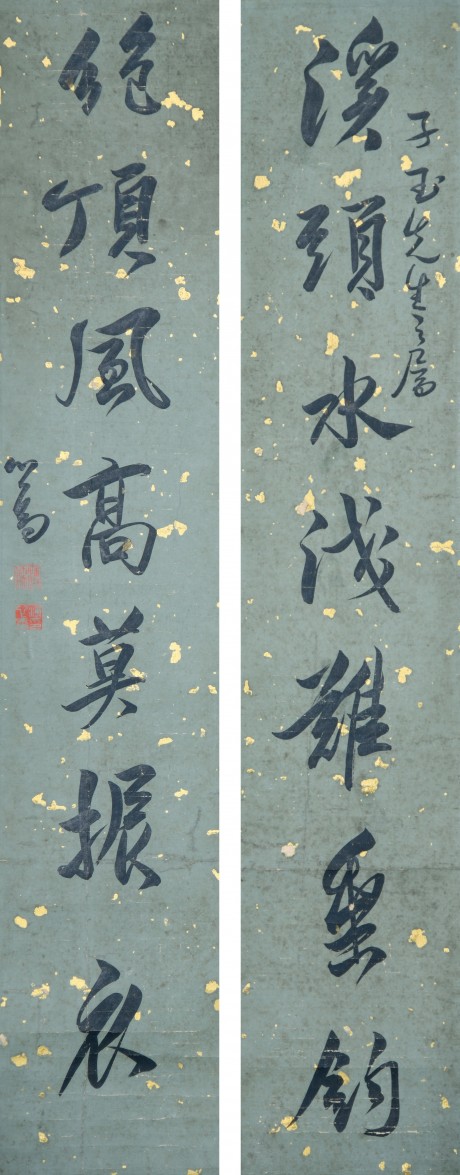 子玉先生之屬
溪頭水淺難垂釣
絶頂風高莫振衣
心畬